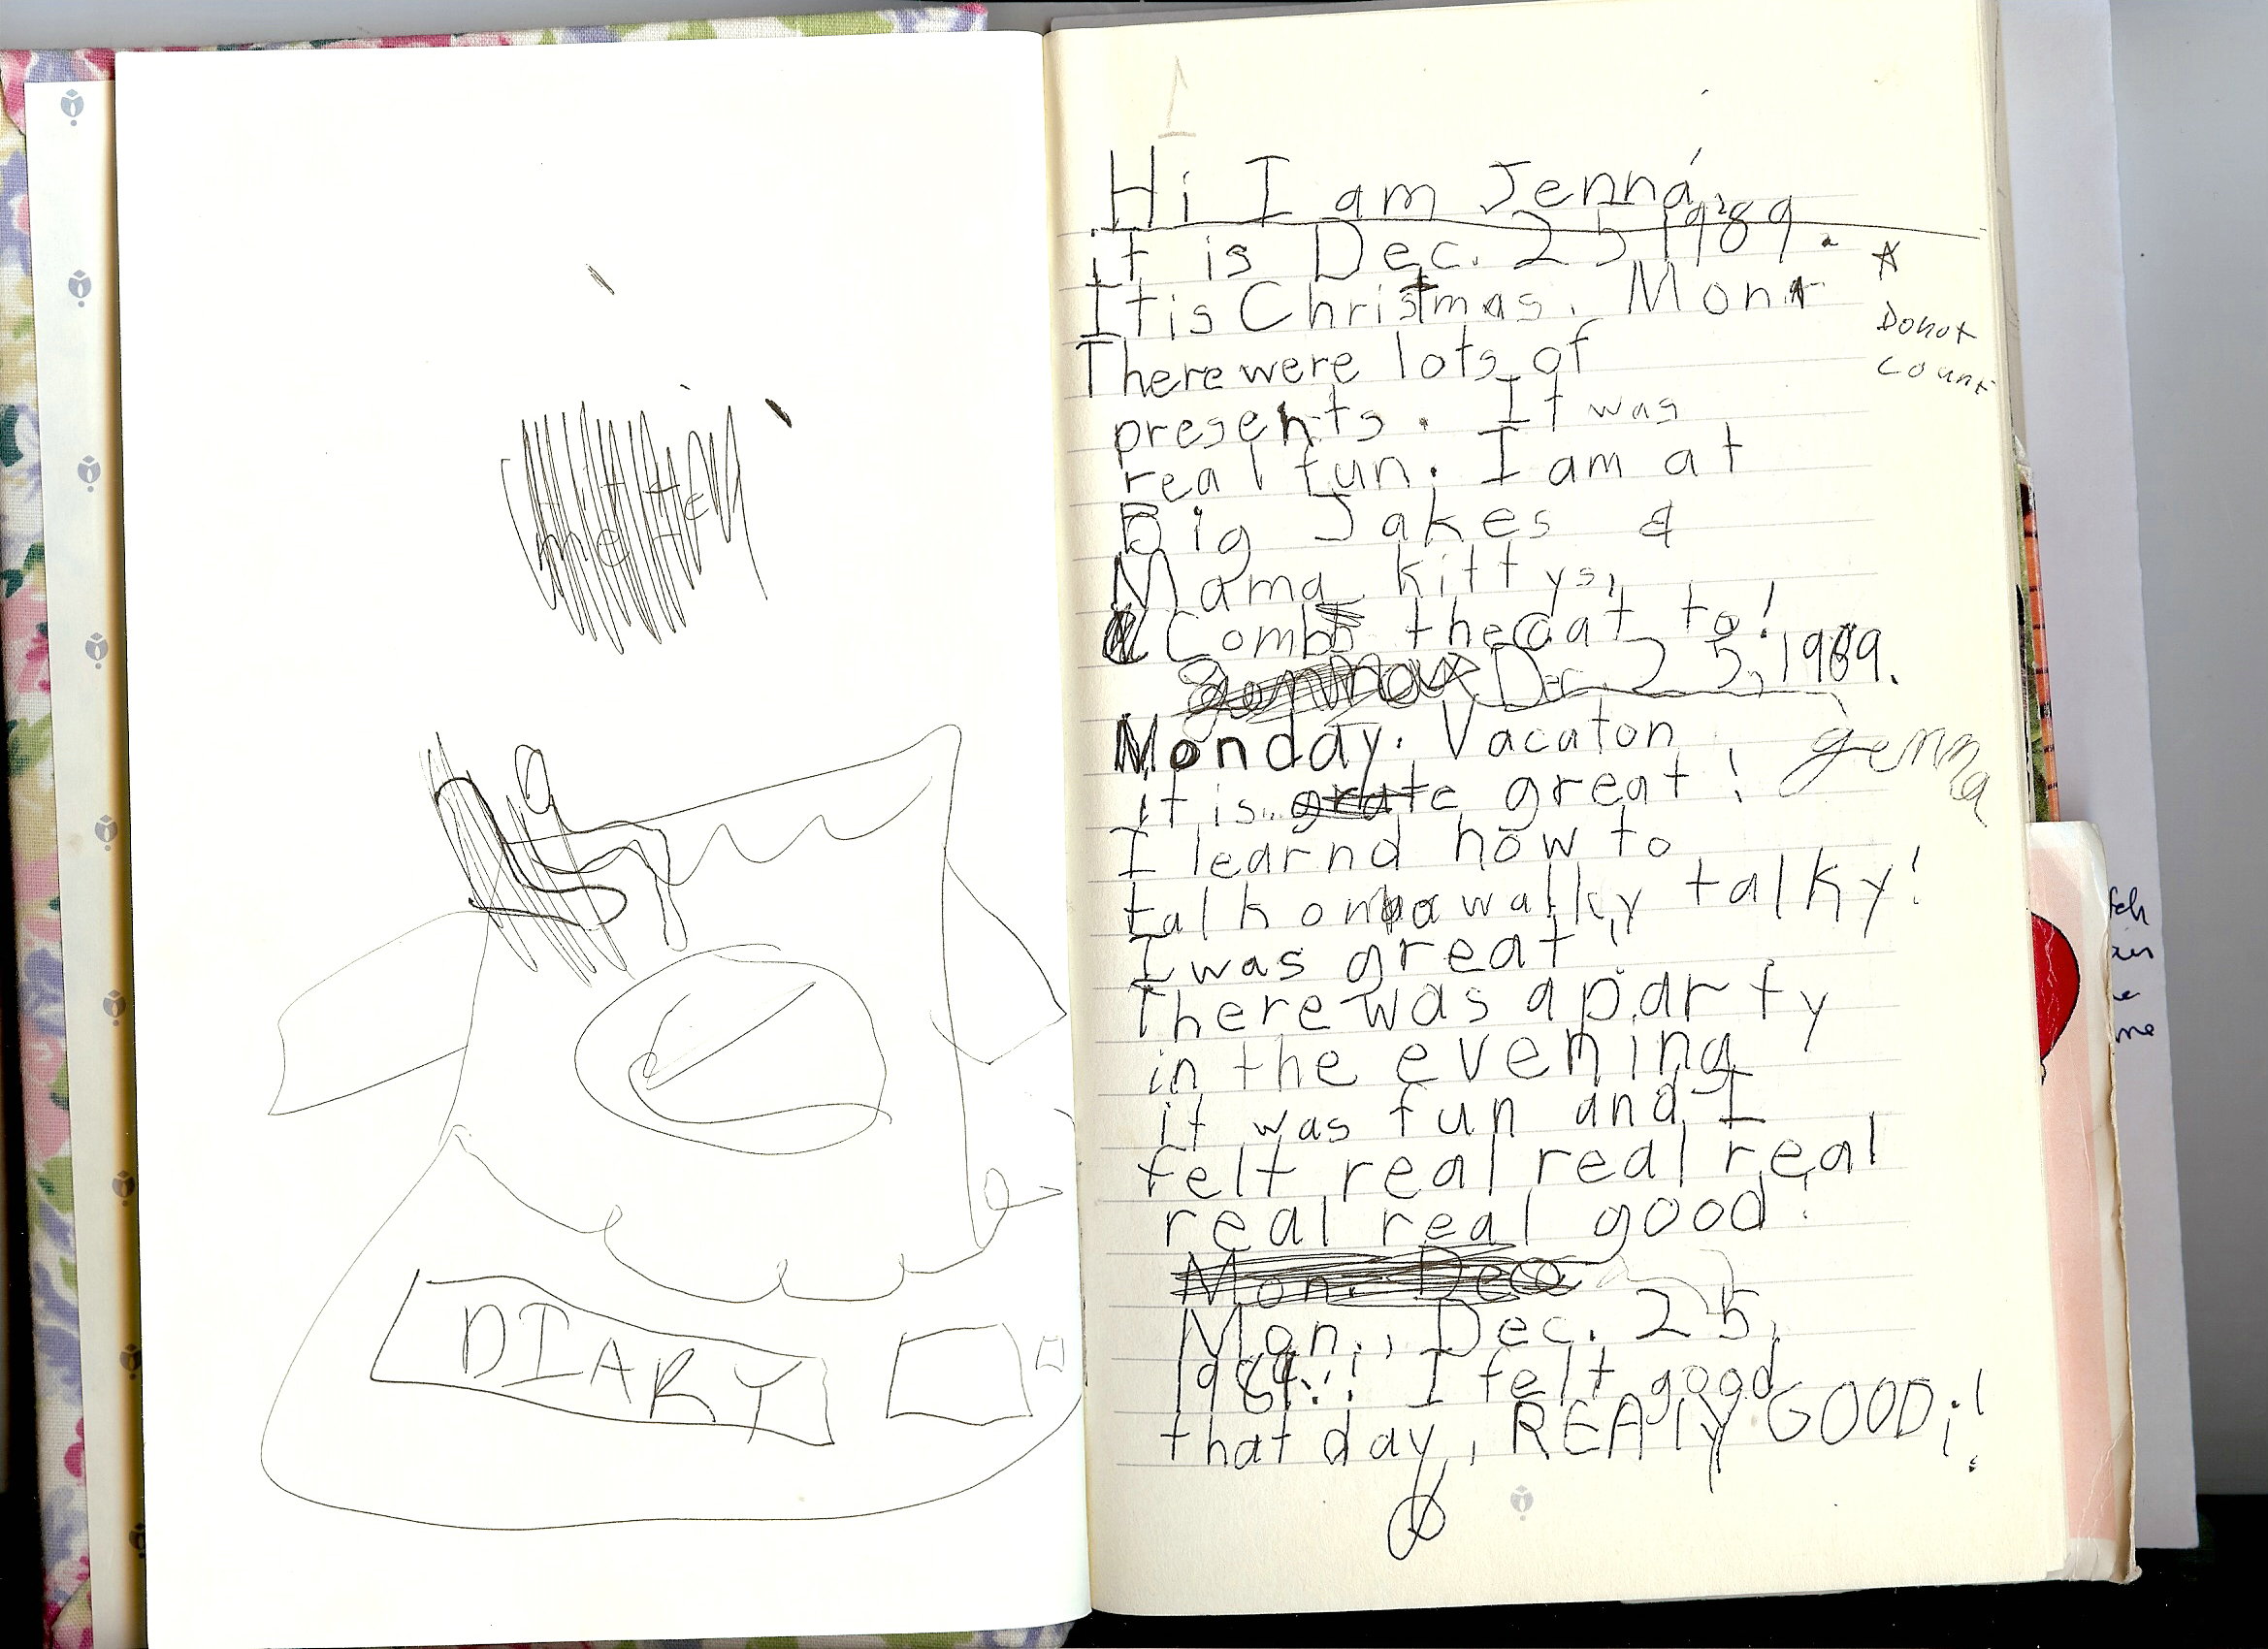 DIARY
1
Hi I am Jenna
it is Dec. 25 1989.
It is Christmas. Mon
There were lots of
presents. It was
real fun. I am at
Big Jakes &
Mama kittys,
& Comb the cat to!
Dec. 25, 1989.
Monday. Vacaton
it is grate great!
I learnd how to
talk on a walky talky!
I was great!
There was a party
in the evening
it was fun and I
felt real real real
real real good!
Mon. Dec
Mon., Dec. 25,
1989!! I felt good
that day, REAlY GOOD!!
☆
Donot
count
genna